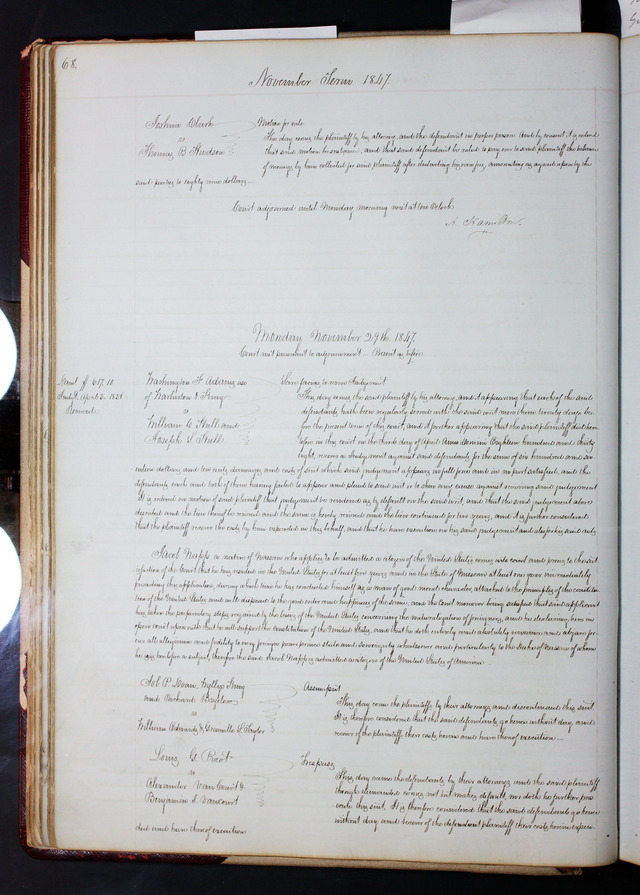 68.
November Term 1847
Joshua Clark
vs
Thomas B. Hudson
Motion for rule
This day come the plaintiff by his attorney, and the defendant in proper person and by consent it is ordered
that said motion be sustained, and that said defendant be ruled to pay over to said plaintiff the balance
of moneys by him collected for said plaintiff after deducting his own fees, amounting as agreed upon by the
said parties to eighty nine dollars
Court adjourned until Monday morning next at ten Oclock
A. Hamilton
Monday November 29th 1847.
Court met pursuant to adjournment. Present as before
617.10
April 3. 1838
Washington F
King
vs
William C. Hull and
Joseph D. Hull
Scire facias to revive Judgment
This day come the said plaintiff by his attorney, and it appearing that each of the said
defendants hath been regularly served with the said writ more than twenty days be
fore the present term of this court, and it further appearing that the said plaintiff did here
tofore in this court on the third day of April Anno Domini Eighteen hundred and thirty
eight, recover a Judgment against said defendants for the sum of six hundred and sev
enteen dollars and ten cents damages and costs of suit which said judgment appears in full force and in no part satisfied, and the
defendants each and both of them having failed to appear and plead to said writ or to shew any cause against reviving said judgment
It is ordered on motion of said plaintiff that judgment be rendered as by default on the said writ, and that the said judgment above
described and the lien thereof be revived and the same is hereby revived and the lien continued for two years, and it is further considered
that the plaintiff recover the costs by him expended in this behalf, and that he have execution on his said judgment and also for his said costs
Jacob Napp a native of Nassau who applies to be admitted a citizen of the United States comes into court and proves to the sat
isfaction of the Court that he has resided in the United States for at least five years and in the State of Missouri at least one year immediately
preceding this application, during which time he has conducted himself as a man of good moral character, attached to the principles of the constitu
tion of the United States and well disposed to the good order and happiness of the same, and the Court moreover being satisfied that said applicant
has taken the preparatory steps required by the laws of the United States concerning the naturalization of foreigners, and he declaring here in
open court upon oath that he will support the constitution of the United States, and that he doth entirely and absolutely renounce and abjure for
ever all allegiance and fidelity to any foreign power prince state and sovereignty whatsoever and particularly to the Duke of Nassau of whom
he was heretofore a subject, therefore the said Jacob Napp is admitted a citizen of the United States of America
Job P. Doan, Wyllys King
and Richard Bigelow
vs
William Edwards & Granville C. Taylor
Assumpsit
This day come the plaintiffs by their attorneys and discontinue this suit
It is therefore considered that the said defendants go hence without day and
recover of the plaintiffs their costs herein and have thereof execution
Louis G. Picot
vs
Alexander Vancourt &
Benjamin L. Vancourt
Trespass
This day come the defendants by their attorneys and the said plaintiff
though demanded comes not but makes default, nor doth he further prose
cute this suit. It is therefore considered that the said defendants go hence
without day and recover of the defendant plaintiff their costs herein expen
ded and have thereof execution